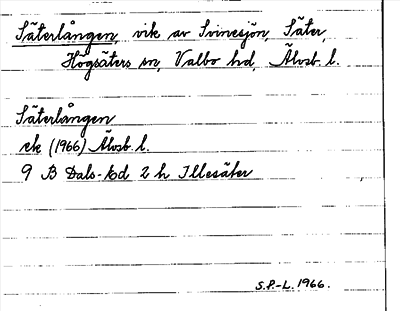 Säterlången, vik av Svinesjön, Säter,
Högsäters sn, Valbo hd, Älvsb. l.
Säterlången
ek (1966) Älvsb. l.
9 B Dals-Ed 2 h Illesäter
S.P.-L. 1966.